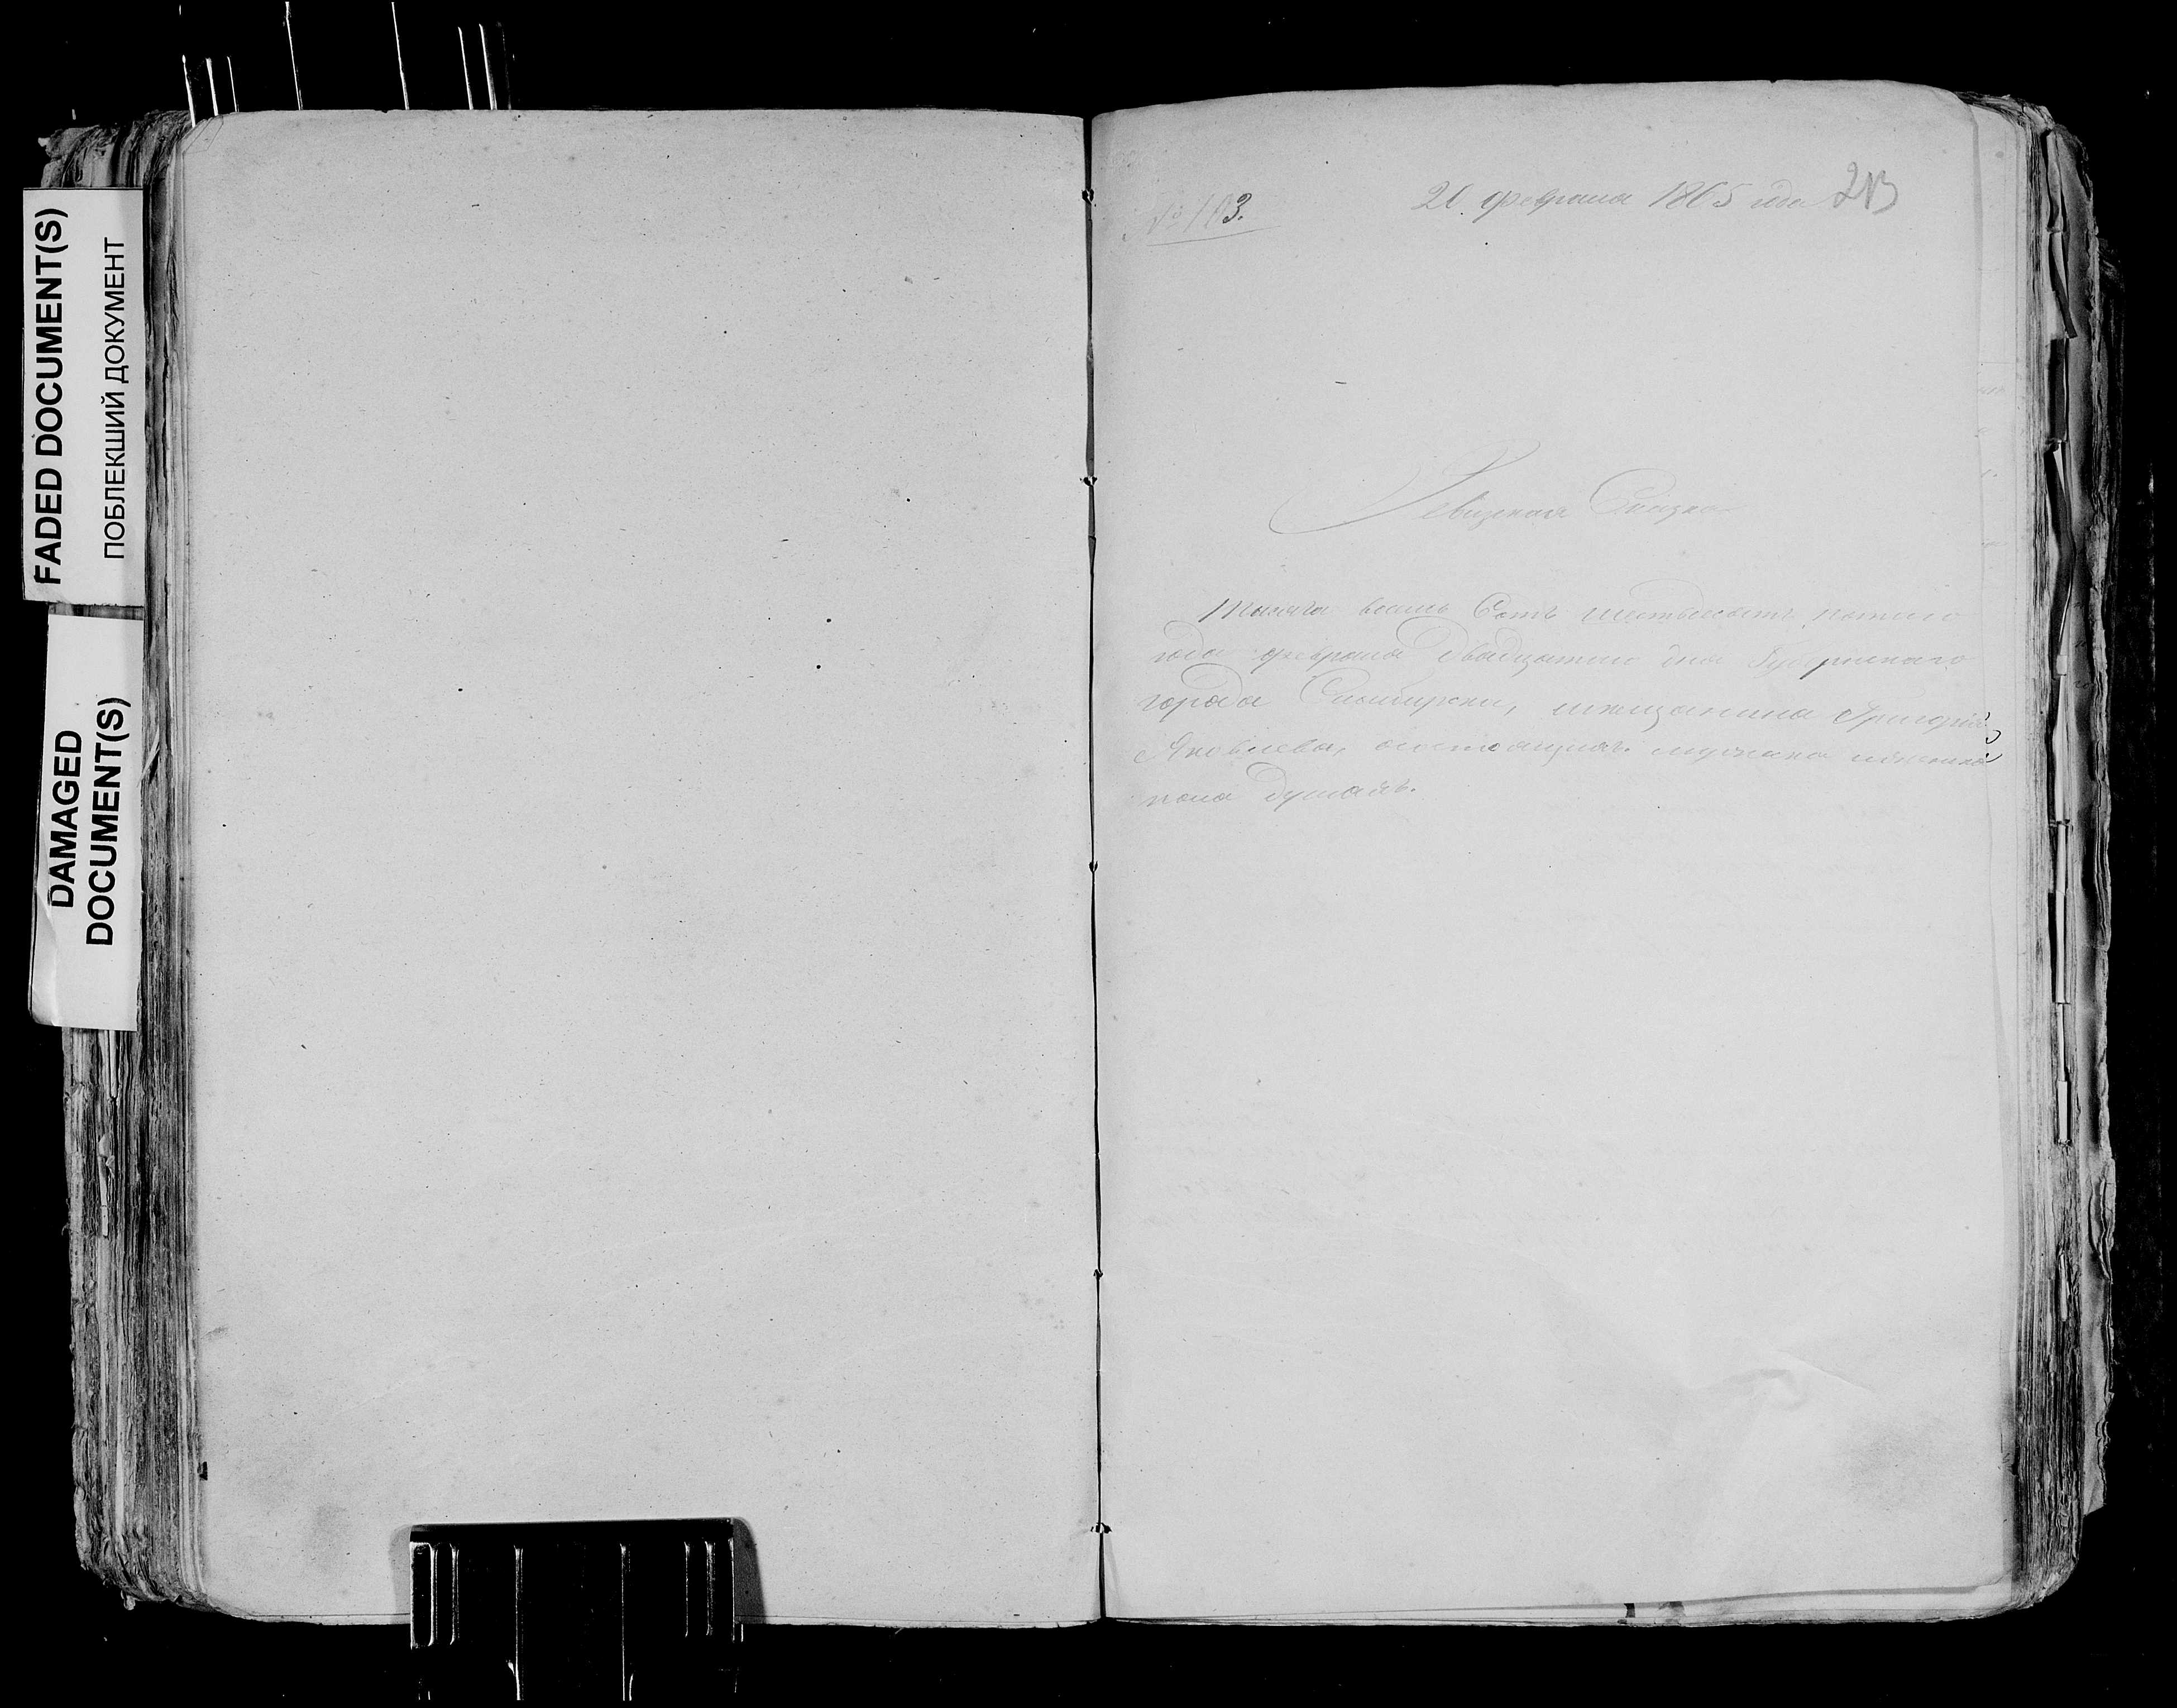 FADED DOCUMENT(S)
ПОБЛЕКШИЙ ДОКУМЕНТ
DAMAGED
DOCUMENT(S)
№ 103.
20 февраля 1865 года
213
Ревизская Сказка
Тысяча восемь Сотъ шестьдесятъ пятаго
года февраля двадцатаго дня Губернскаго
города Симбирска, мещанина Григорья
Яковлева, о состоящихъ мужеска и женска
пола душахъ.